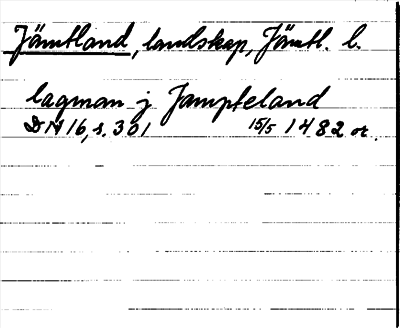 Jämtland, landskap, Jämtl. l.
lagman j Jampteland
DN 16, s. 301 15/5 1482 or.